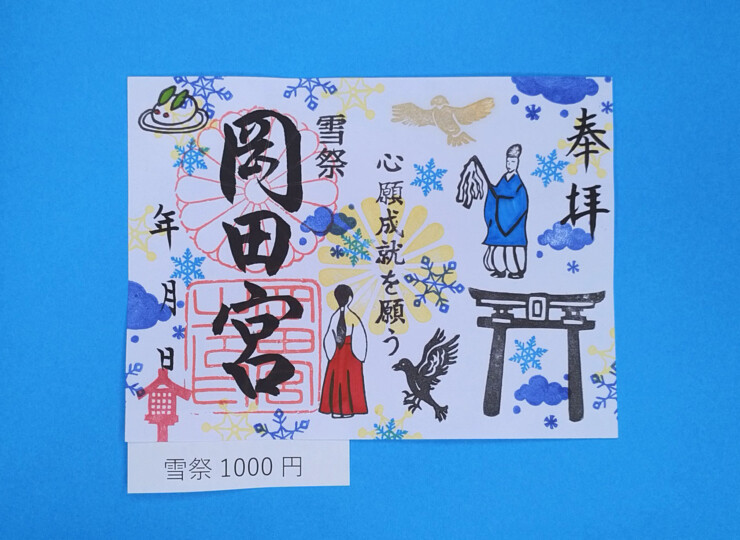 奉拝
心願成就を願う
雪祭
岡田宮
年月日
雪祭 1000 円